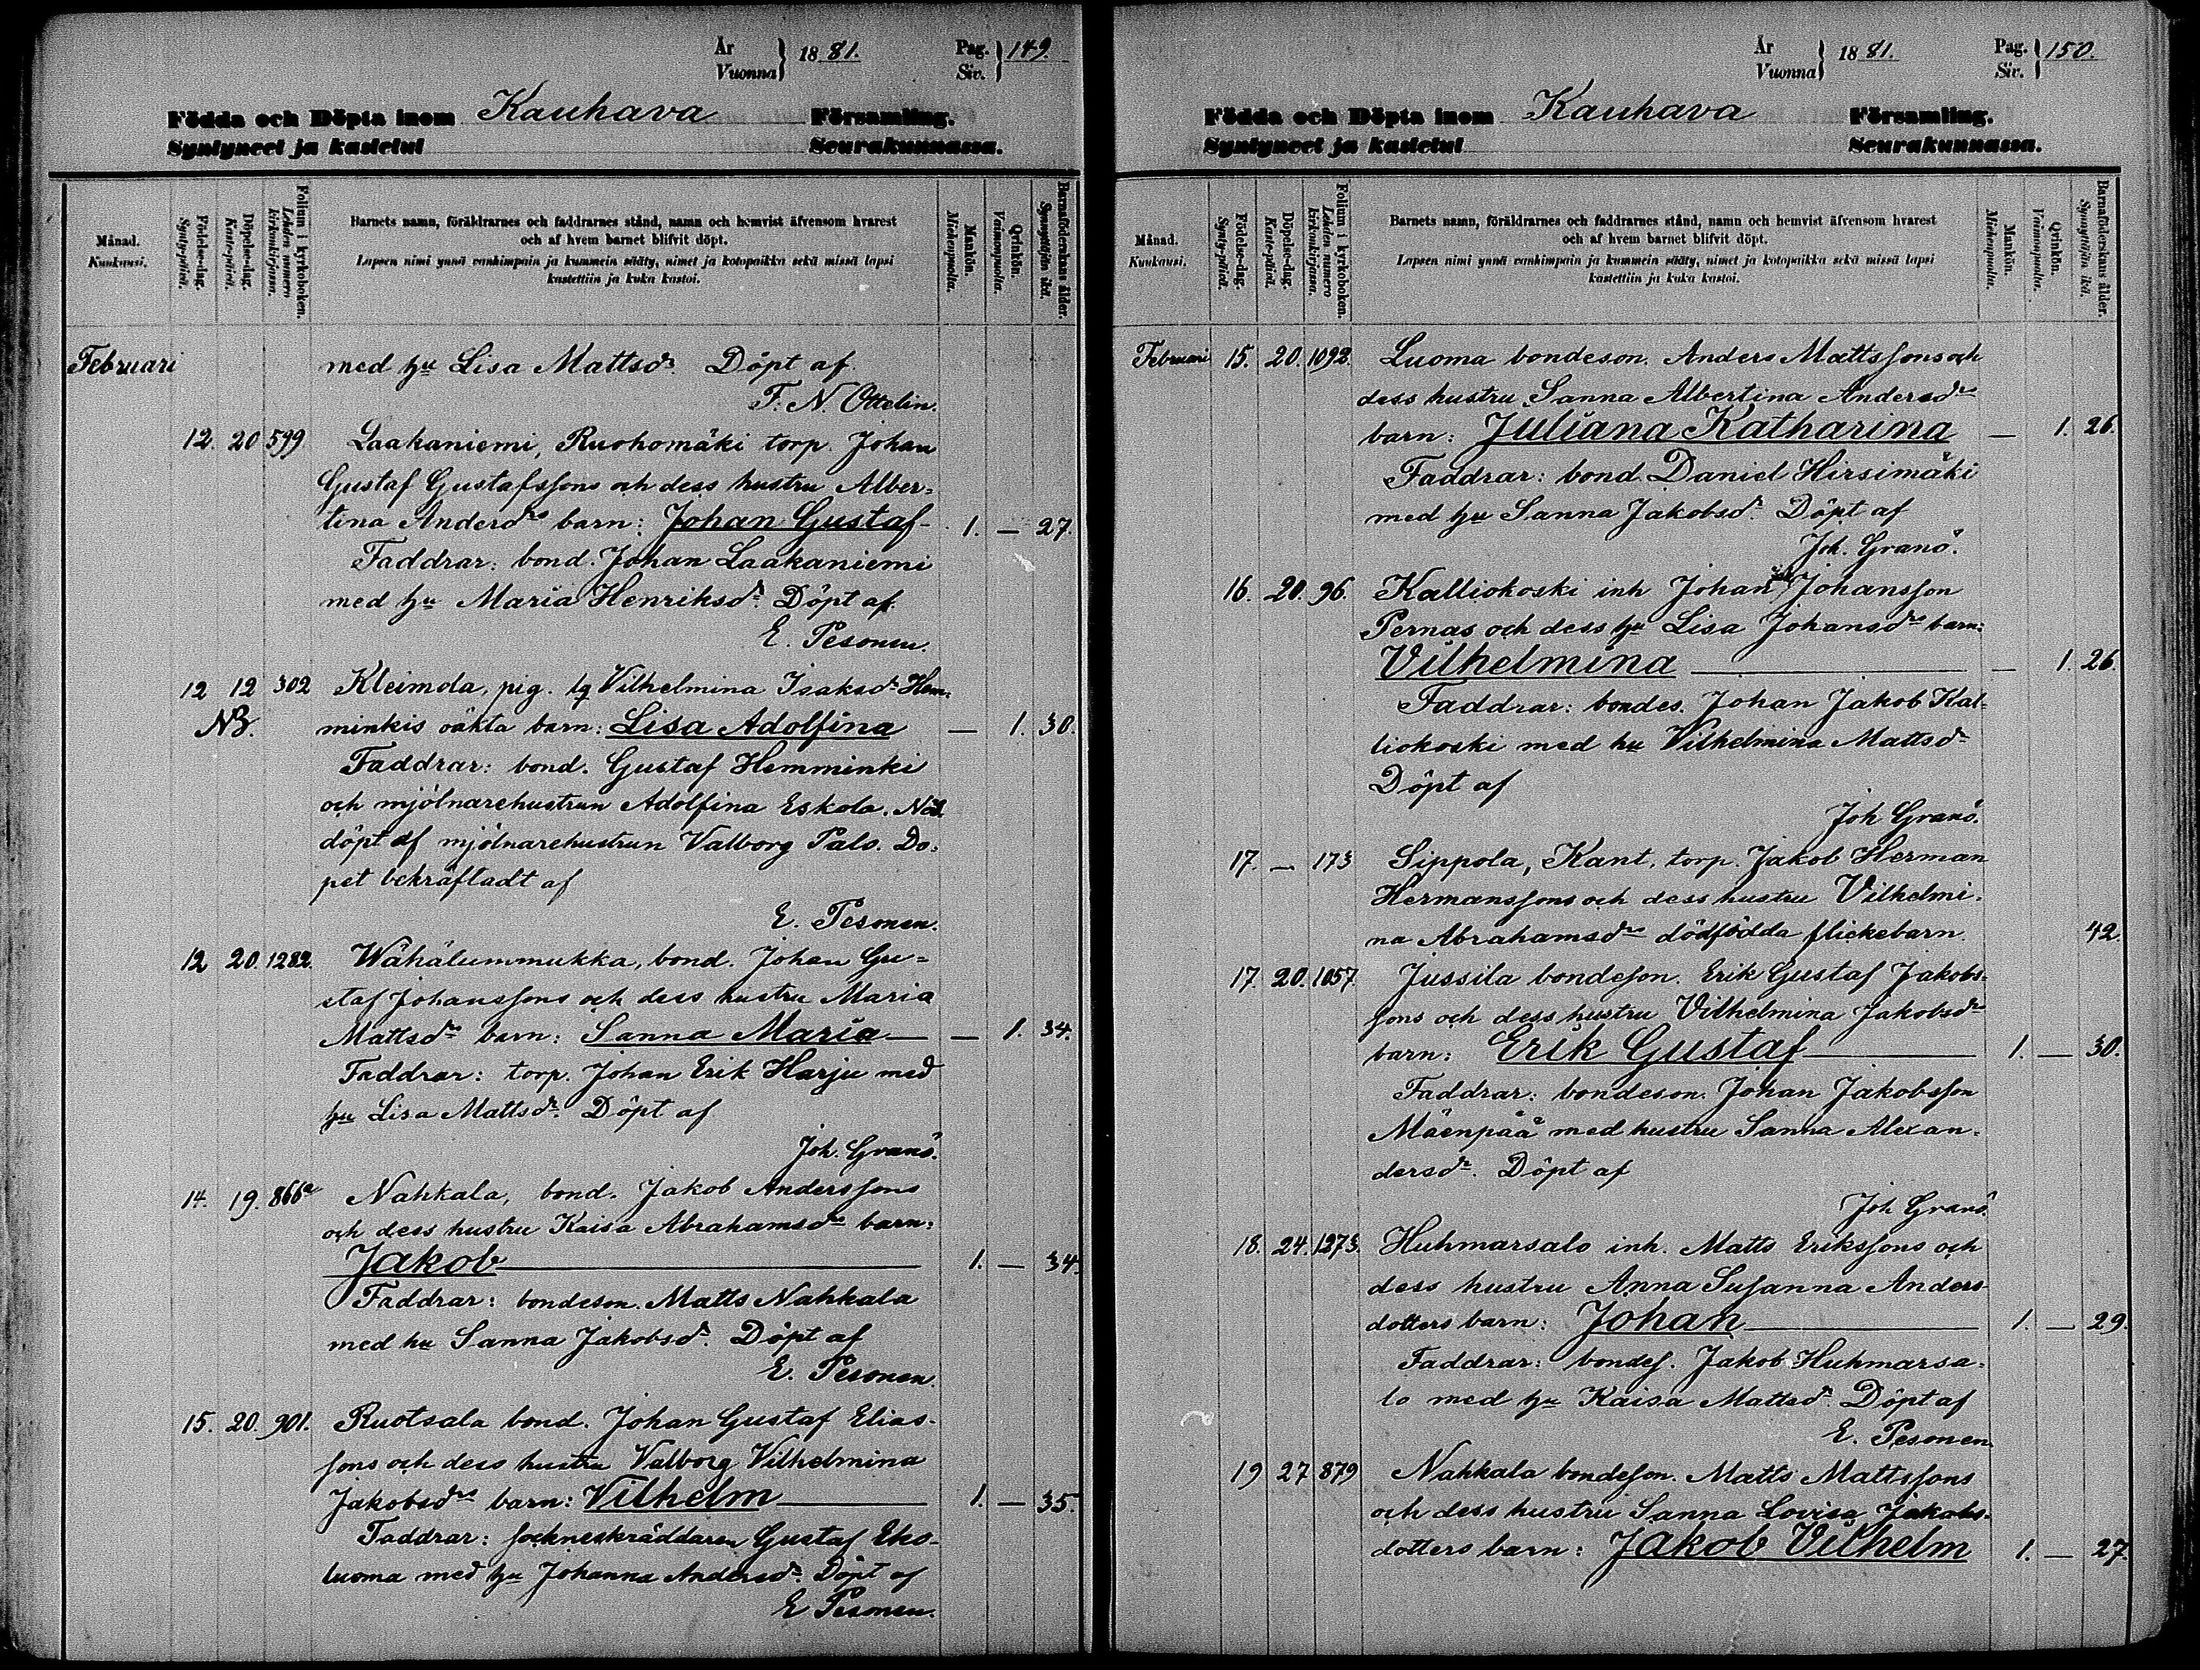 År
Vuonna } 1881. Pag. Siv. } 149.
Födda och Döpta inom Kauhava Församling.
Syntyneet ja kastetut Seurakunnassa.
Månad. Kuukausi.
Födelse-dag. Syntypäivä.
Döpelse-dag. Kastepäivä.
Folium i kyrkoboken. Lehden numero kirkonkirjassa.
Barnets namn, föräldrarnes och faddrarnes stånd, namn och hemvist äfvensom hvarest
och af hvem barnet blifvit döpt.
Lapsen nimi ynnä vanhimpain ja kummein sääty, nimet ja kotopaikka sekä missä lapsi
kastettiin ja kuka kastoi.
Mankön. Miehenpuolia.
Qvinkön. Vaimonpuolia.
Barnaföderskans ålder. Synnyttäjän ikä.
Februari med hu Lisa Mattsdr. Döpt af
F. N. Ottelin.
12. 20 599 Laakaniemi, Ruohomäki torp. Johan
Gustaf Gustafssons och dess hustru Alber-
tina Andersdrs barn: Johan Gustaf 1. — 27.
Faddrar: bond. Johan Laakaniemi
med hu Maria Henriksdr. Döpt af
E. Pesonen.
12 12 302 Kleimola, pig. lq Vilhelmina Isaksdr Hem-
NB. minkis oäkta barn: Lisa Adolfina — 1. 30.
Faddrar: bond. Gustaf Hemminki
och mjölnarehustrun Adolfina Eskola. Nöd.
döpt af mjölnarehustrun Valborg Palo. Do-
pet bekräftadt af
E. Pesonen.
12 20. 1282. Wähälummukka, bond. Johan Gu-
staf Johanssons och dess hustru Maria
Mattsdrs barn: Sanna Maria — — 1. 34.
Faddrar: torp. Johan Erik Harju med
hu Lisa Mattsdr. Döpt af
Joh. Granö.
14. 19. 866a Nahkala, bond. Jakob Anderssons
och dess hustru Kaisa Abrahamsdrs barn:
Jakob 1. — 34.
Faddrar: bondeson. Matts Nahkala
med hu Sanna Jakobsdr. Döpt af
E. Pesonen.
15. 20. 901. Ruotsala bond. Johan Gustaf Elias-
sons och dess hustru Valborg Vilhelmina
Jakobsdrs barn: Vilhelm 1. — 35.
Faddrar: sockneskräddaren Gustaf Eko-
luoma med hu Johanna Andersdr. Döpt af
E Pesonen.
År
Vuonna } 1881. Pag. Siv. } 150.
Födda och Döpta inom Kauhava Församling.
Syntyneet ja kastetut Seurakunnassa.
Månad. Kuukausi.
Födelse-dag. Syntypäivä.
Döpelse-dag. Kastepäivä.
Folium i kyrkoboken. Lehden numero kirkonkirjassa.
Barnets namn, föräldrarnes och faddrarnes stånd, namn och hemvist äfvensom hvarest
och af hvem barnet blifvit döpt.
Lapsen nimi ynnä vanhimpain ja kummein sääty, nimet ja kotopaikka sekä missä lapsi
kastettiin ja kuka kastoi.
Mankön. Miehenpuolia.
Qvinkön. Vaimonpuolia.
Barnaföderskans ålder. Synnyttäjän ikä.
Februari 15. 20. 1092. Luoma bondeson. Anders Mattssons och
dess hustru Sanna Albertina Andersdrs
barn: Juliana Katharina — 1. 26.
Faddrar: bond. Daniel Hirsimäki
med hu Sanna Jakobsdr. Döpt af
Joh. Granö.
16. 20. 96. Kalliokoski inh Johan Johansson
Pernas och dess hu Lisa Johansdrs barn:
Vilhelmina — 1. 26.
Faddrar: bondes. Johan Jakob Kal-
liokoski med hu Vilhelmina Mattsdr
Döpt af
Joh Granö.
17. — 173 Sippola, Kant, torp. Jakob Herman
Hermanssons och dess hustru Vilhelmi-
na Abrahamsdrs dödfödda flickebarn. 42.
17. 20. 1057 Jussila bondeson. Erik Gustaf Jakobs-
sons och dess hustru Vilhelmina Jakobsdrs
barn: Erik Gustaf 1. — 30.
Faddrar: bondeson. Johan Jakobsson
Mäenpää med hustru Sanna Alexan-
dersdr. Döpt af
Joh Granö.
18. 24. 1273. Huhmarsalo inh. Matts Erikssons och
dess hustru Anna Susanna Anders-
dotters barn: Johan 1. — 29.
Faddrar: bondes. Jakob Huhmarsa-
lo med hu Kaisa Mattsdr. Döpt af
E. Pesonen.
19 27 879 Nahkala bondeson. Matts Mattssons
och dess hustru Sanna Lovisa Jakobs-
dotters barn: Jakob Vilhelm 1. — 27.